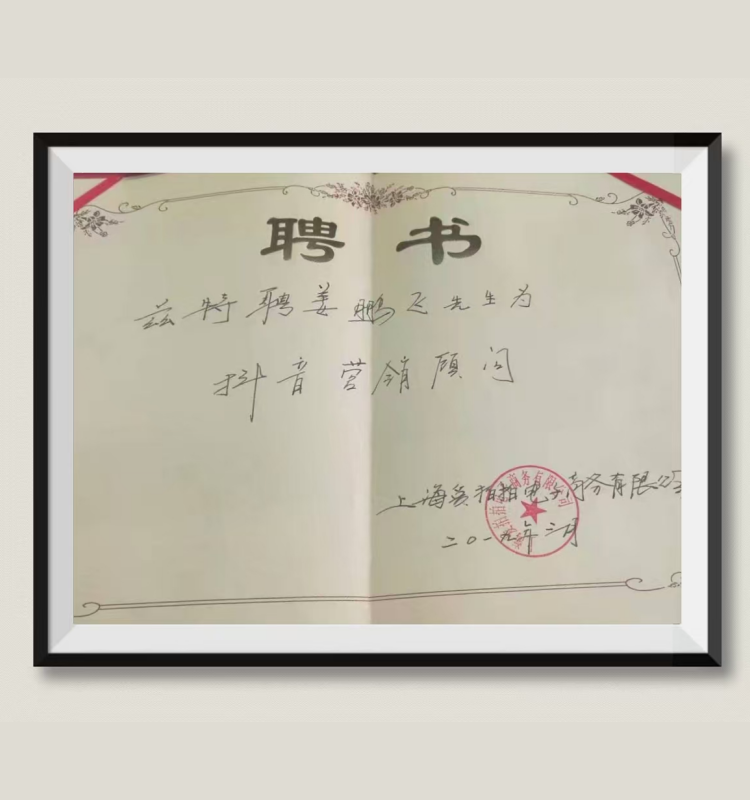 聘书
兹特聘姜鹏飞先生为
抖音营销顾问
上海爱拍拍电子商务有限公司
二〇一九年三月